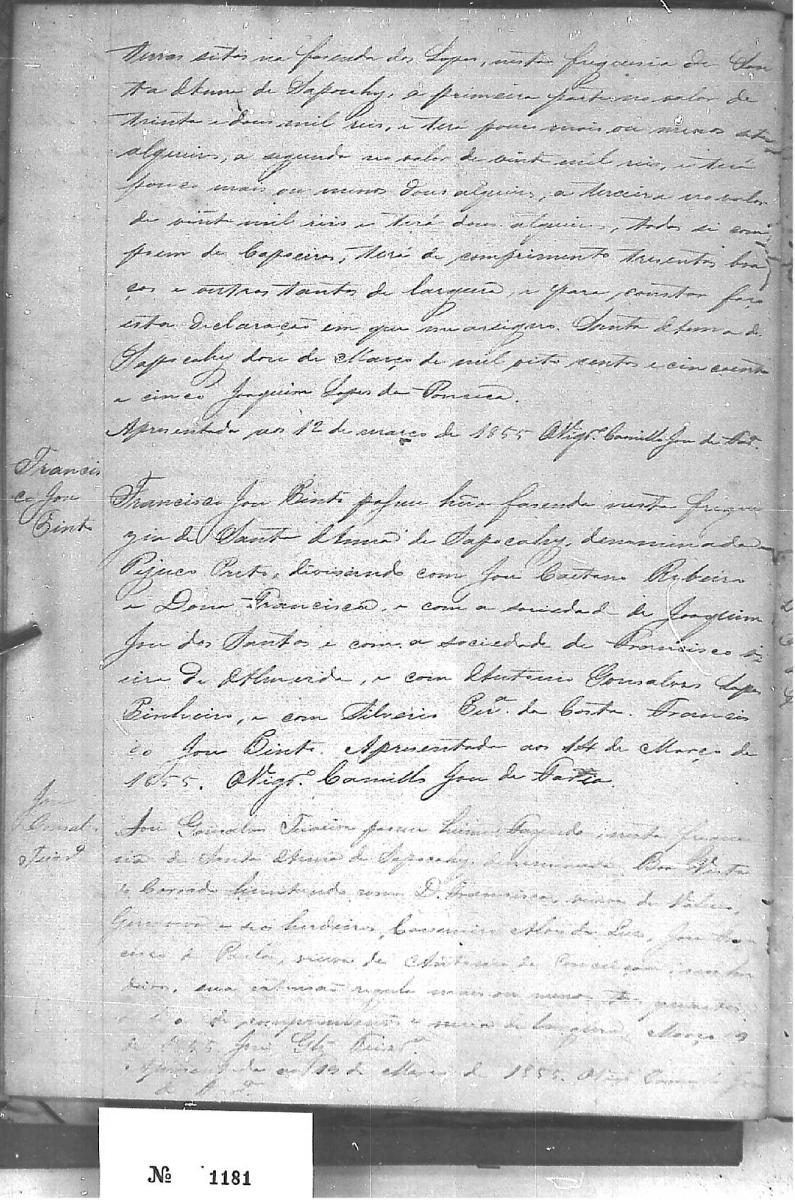 terras sitas na fazenda dos Lopes, nesta freguesia de San
ta Anna de Sapocahy, a primeira parte no valor de
trinta e dous mil reis, e terá pouco mais ou menos sete
alqueires, a segunda no valor de vinte mil reis, e terá
pouco mais ou menos dous alqueires, a terceira no valor
de vinte mil reis e terá dous alqueires, todas se com
poem de Capoeiras, terá de comprimento tresentas bra
ças e outros tantos de largura, e para constar faço
esta declaração em que me assigno. Santa Anna de
Sapocahy doze de Março de mil oito centos e cincoenta
e cinco Joaquim Lopes da Fonseca.
Apresentada aos 12 de março de 1855 O Vigrº. Camillo Jose de Far.
Francis
co Jose
Pinto
Francisco Jose Pinto possue huma fazenda nesta fregue
zia de Santa Anna de Sapocahy, denominada
Pejuco Preto, divisando com Jose Caetano Ribeiro
e Dona Francisca, e com a sociedade de Joaquim
Jose dos Santos e com a sociedade de Francisco
de Almeida, e com Antonio Gonsalves Lopes
Pinheiro, e com Silverio da Costa. Francis
co Jose Pinto. Apresentada aos 14 de Março de
1855. O Vigrº. Camillo Jose de Faria.
Jose
Gonsal.
Teixrª
Jose Gonsalves Teixeira possue huma Fazenda nesta fregue
zia de Santa Anna de Sapocahy, denominada Boa Vista
com D. Francisca, viuva de
e seos herdeiros, Casemiro Alves da Luz, Jose Fran
cisco de Paula, viuva de Antonio da Conceição
sua extensão regula mais ou menos
de comprimento e meia de largura, Março
de 1855 Jose Glz Teixrª
Apresentada aos 14 de Março de 1855. O Vigrº Camillo Jose
de Farª.
№ 1181